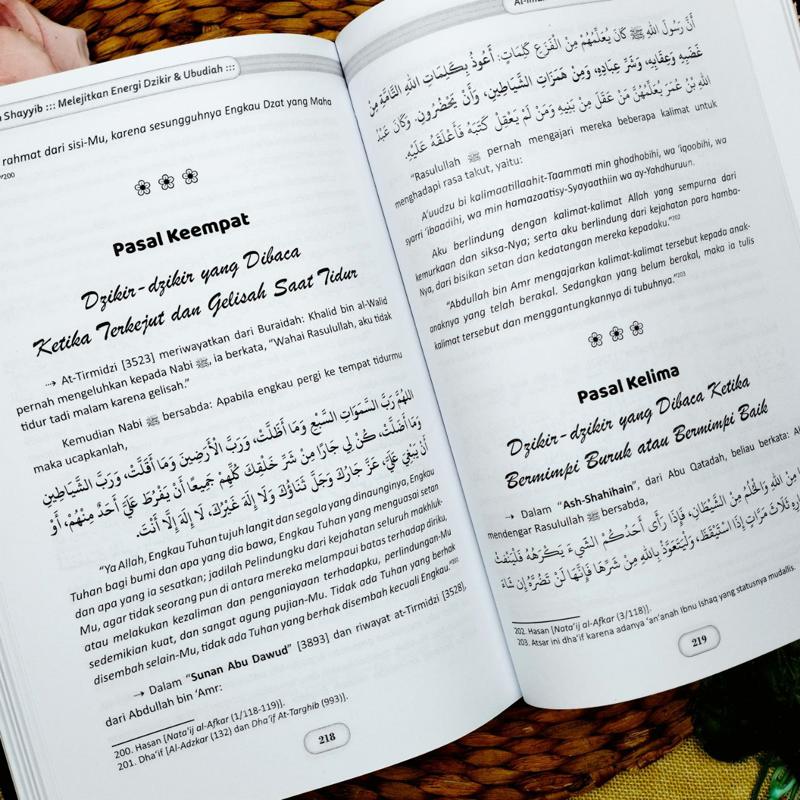 Shayyib ::: Melejitkan Energi Dzikir & Ubudiah :::
rahmat dari sisi-Mu, karena sesungguhnya Engkau Dzat yang Maha
"200
Pasal Keempat
Dzikir-dzikir yang Dibaca
Ketika Terkejut dan Gelisah Saat Tidur
→ At-Tirmidzi [3523] meriwayatkan dari Buraidah: Khalid bin al-Walid
pernah mengeluhkan kepada Nabi ﷺ, ia berkata, "Wahai Rasulullah, aku tidak
tidur tadi malam karena gelisah."
Kemudian Nabi ﷺ bersabda: Apabila engkau pergi ke tempat tidurmu
maka ucapkanlah,
اللَّهُمَّ رَبَّ السَّمَوَاتِ السَّبْعِ وَمَا أَظَلَّتْ، وَرَبَّ الْأَرَضِينَ وَمَا أَقَلَّتْ، وَرَبَّ الشَّيَاطِينِ
وَمَا أَضَلَّتْ، كُنْ لِي جَارًا مِنْ شَرِّ خَلْقِكَ كُلِّهِمْ جَمِيعًا أَنْ يَفْرُطَ عَلَيَّ أَحَدٌ مِنْهُمْ، أَوْ
أَنْ يَبْغِيَ عَلَيَّ، عَزَّ جَارُكَ وَجَلَّ ثَنَاؤُكَ وَلَا إِلَهَ غَيْرُكَ، لَا إِلَهَ إِلَّا أَنْتَ.
"Ya Allah, Engkau Tuhan tujuh langit dan segala yang dinaunginya, Engkau
Tuhan bagi bumi dan apa yang dia bawa, Engkau Tuhan yang menguasai setan
dan apa yang ia sesatkan; jadilah Pelindungku dari kejahatan seluruh makhluk-
Mu, agar tidak seorang pun di antara mereka melampaui batas terhadap diriku,
atau melakukan kezaliman dan penganiayaan terhadapku, perlindungan-Mu
sedemikian kuat, dan sangat agung pujian-Mu. Tidak ada Tuhan yang berhak
disembah selain-Mu, tidak ada Tuhan yang berhak disembah kecuali Engkau."201
→ Dalam "Sunan Abu Dawud" [3893] dan riwayat at-Tirmidzi [3528],
dari Abdullah bin 'Amr:
200. Hasan [Nata'ij al-Afkar (1/118-119)].
201. Dha'if [Al-Adzkar (132) dan Dha'if At-Targhib (993)].
218
أَنَّ رَسُولَ اللهِ ﷺ كَانَ يُعَلِّمُهُمْ مِنَ الْفَزَعِ كَلِمَاتٍ: أَعُوذُ بِكَلِمَاتِ اللهِ التَّامَّةِ مِنْ
غَضَبِهِ وَعِقَابِهِ، وَشَرِّ عِبَادِهِ، وَمِنْ هَمَزَاتِ الشَّيَاطِينِ، وَأَنْ يَحْضُرُونِ. وَكَانَ عَبْدُ
اللهِ بْنُ عُمَرَ يُعَلِّمُهُنَّ مَنْ عَقَلَ مِنْ بَنِيهِ وَمَنْ لَمْ يَعْقِلْ كَتَبَهُ فَأَعْلَقَهُ عَلَيْهِ.
"Rasulullah ﷺ pernah mengajari mereka beberapa kalimat untuk
menghadapi rasa takut, yaitu:
A'uudzu bi kalimaatillaahit-Taammati min ghodhobihi, wa 'iqoobihi, wa
syarri 'ibaadihi, wa min hamazaatisy-Syayaathiin wa ay-Yahdhuruun.
Aku berlindung dengan kalimat-kalimat Allah yang sempurna dari
kemurkaan dan siksa-Nya; serta aku berlindung dari kejahatan para hamba-
Nya, dari bisikan setan dan kedatangan mereka kepadaku."202
"Abdullah bin Amr mengajarkan kalimat-kalimat tersebut kepada anak-
anaknya yang telah berakal. Sedangkan yang belum berakal, maka ia tulis
kalimat tersebut dan menggantungkannya di tubuhnya."203
Pasal Kelima
Dzikir-dzikir yang Dibaca Ketika
Bermimpi Buruk atau Bermimpi Baik
→ Dalam "Ash-Shahihain", dari Abu Qatadah, beliau berkata:
mendengar Rasulullah ﷺ bersabda,
مِنَ اللهِ وَالْحُلْمُ مِنَ الشَّيْطَانِ، فَإِذَا رَأَى أَحَدُكُمُ الشَّيْءَ يَكْرَهُهُ فَلْيَنْفُثْ
ثَلَاثَ مَرَّاتٍ إِذَا اسْتَيْقَظَ، وَلْيَتَعَوَّذْ بِاللهِ مِنْ شَرِّهَا فَإِنَّهَا لَنْ تَضُرَّهُ إِنْ شَاءَ
202. Hasan [Nata'ij al-Afkar (3/118)].
203. Atsar ini dha'if karena adanya 'an'anah Ibnu Ishaq yang statusnya mudallis.
219